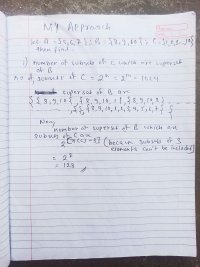 My Approach
let A = {5,6,7} B = {8,9,10} C = {1,2,3,..10}
then find
i) number of subsets of C which are superset
of B
no of subsets of C = 2ⁿ = 2¹⁰ = 1024
superset of B are
{ {8,9,10} , {8,9,10,1} , {8,9,10,2}
Now,
number of superset of B which are
subsets of C are
2 [n(C) - 3] (because subsets of 3
elements can't be included)
= 2⁷
= 128